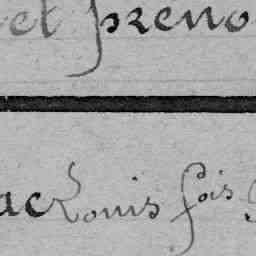 et preno
ac Louis fois